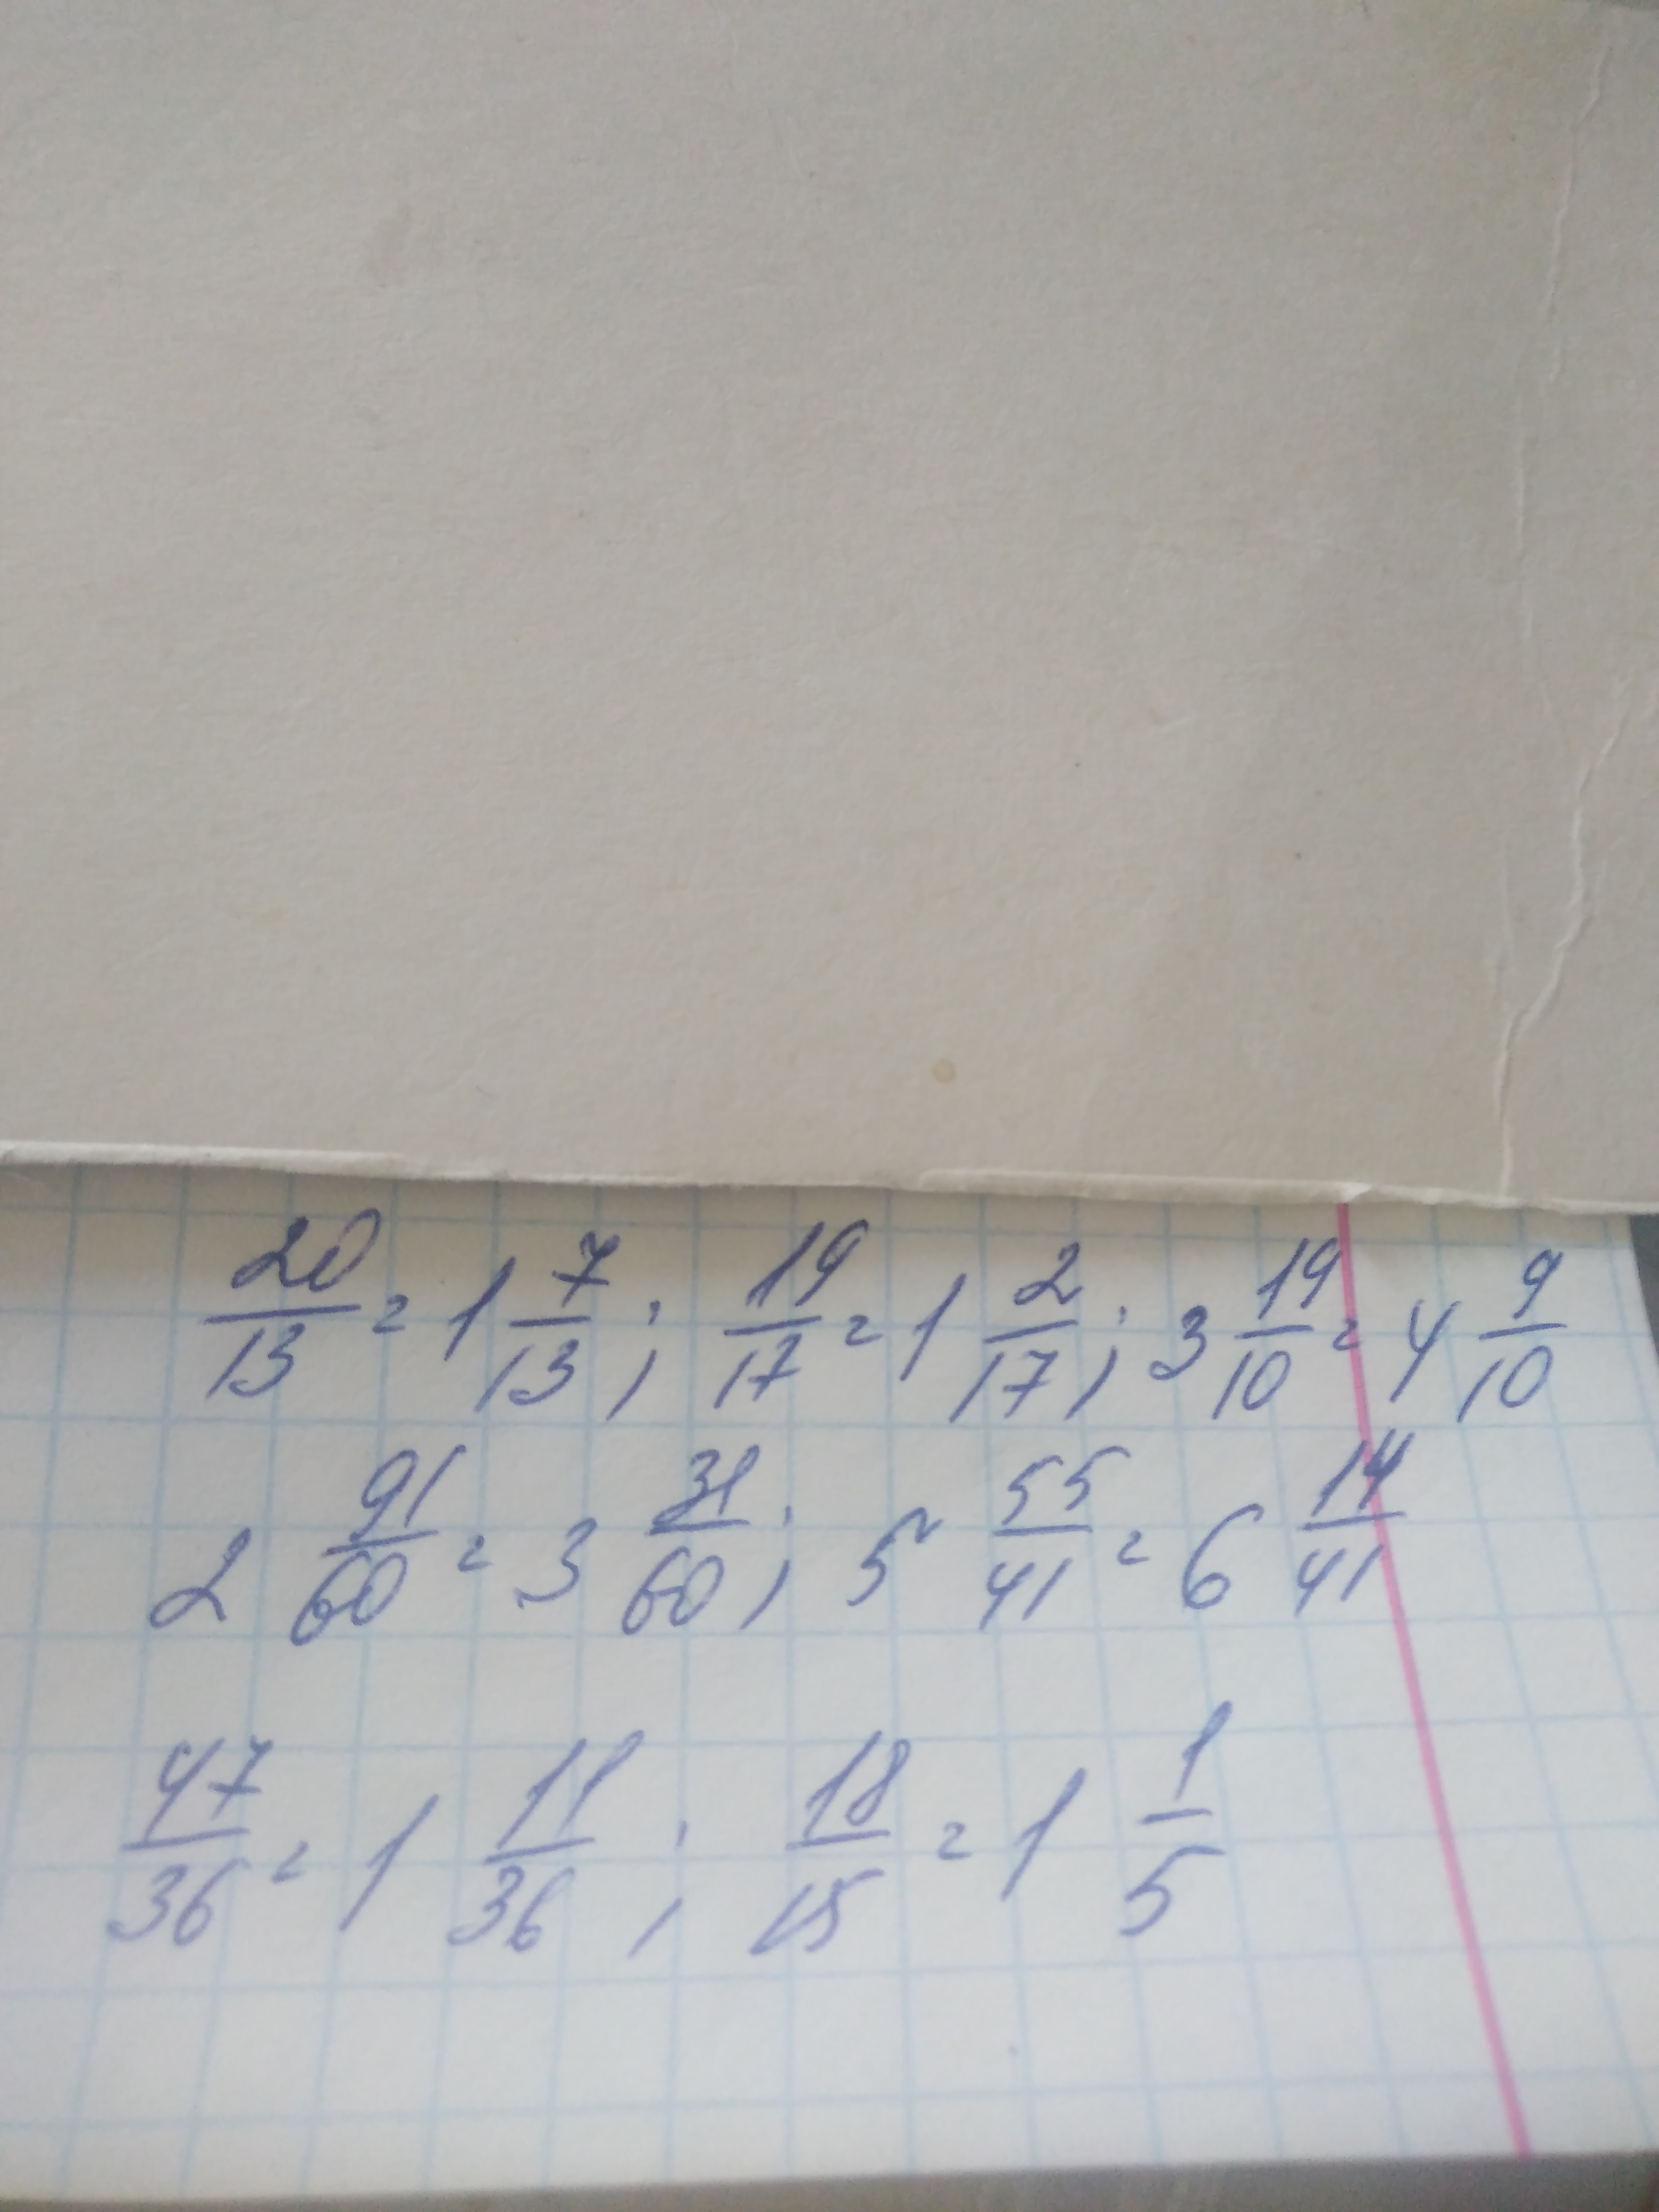 20/13 = 1 7/13 ; 19/17 = 1 2/17 ; 3 19/10 = 4 9/10
2 91/60 = 3 31/60 ; 5 55/41 = 6 14/41
47/36 = 1 11/36 ; 18/15 = 1 1/5